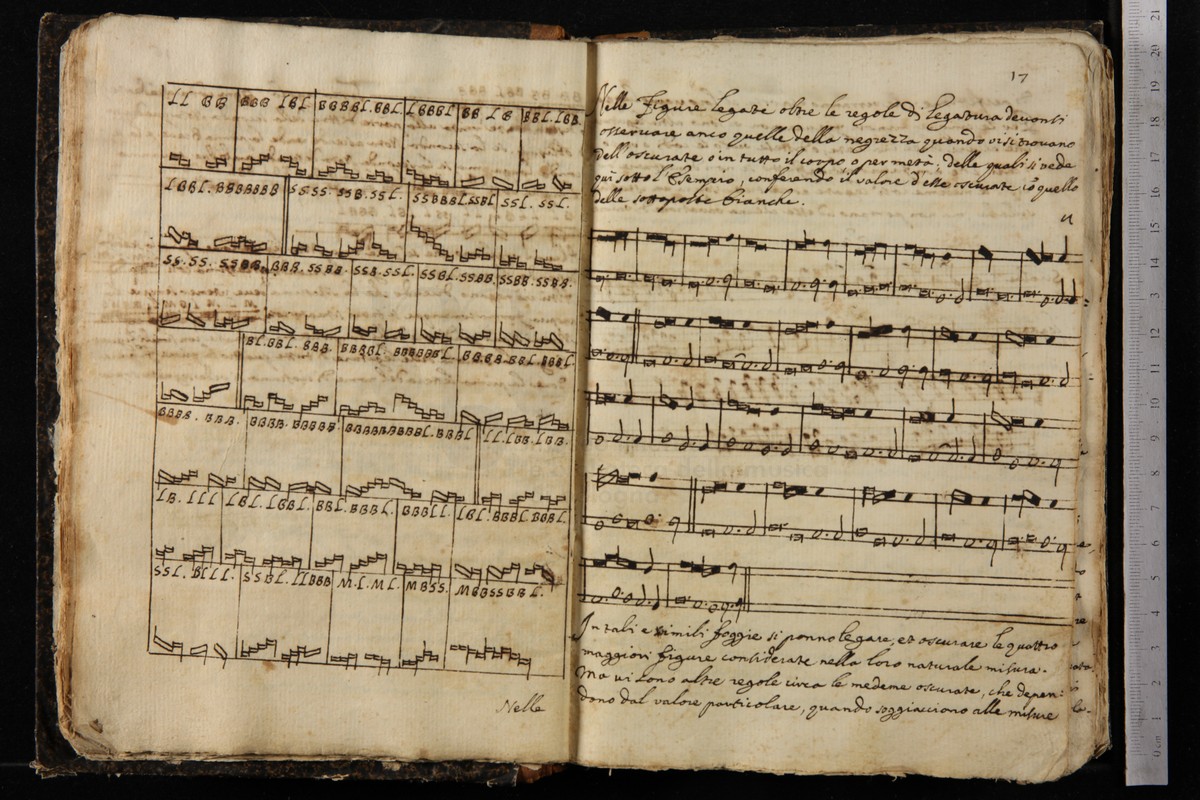 LL BB BBB LBL BBBBL.BBL. LBBBL BB LB BBL.LBB
LBBL.BBBBBBB SSSS SSB.SSL. SSBBBL.SSBL SSL.SSL.
SS.SS.SSBB. BBB.SSBB. SSB.SSL. SSBL.SSBB. SSBB.SSBB.
BL.BBL.BBB. BBBBL BBBBBBL. BBBB.BBL.BBBL
BBBB.BBB. BBBB.BBBBB. BBBBBBBBBL.BBBL LL.LBB LBB.
LB.LLL LBL.LBBL BBL.BBBL BBBLL LBL.BBBL BBBL
SSL.BLLL. SSBL.LLBBB M.L.ML. MBSS. MBBSSBBL.
Nelle
17
Nelle Figure legate oltre le regole di legatura deuonsi
osseruare anco quelle della negrezza quando vi si trouano
dell'oscurate o in tutto il corpo o per metà: delle quali si veda
quì sotto l'Esempio, conferendo il valore d'esse oscurate cõ quello
delle sottoposte bianche.
In tali e simili foggie si ponno legare, et oscurare le quattro
maggiori figure considerate nella loro naturale misura.
Ma vi sono altre regole circa le medeme oscurate, che depen:
dono dal valore particolare, quando soggiacciono alle misure